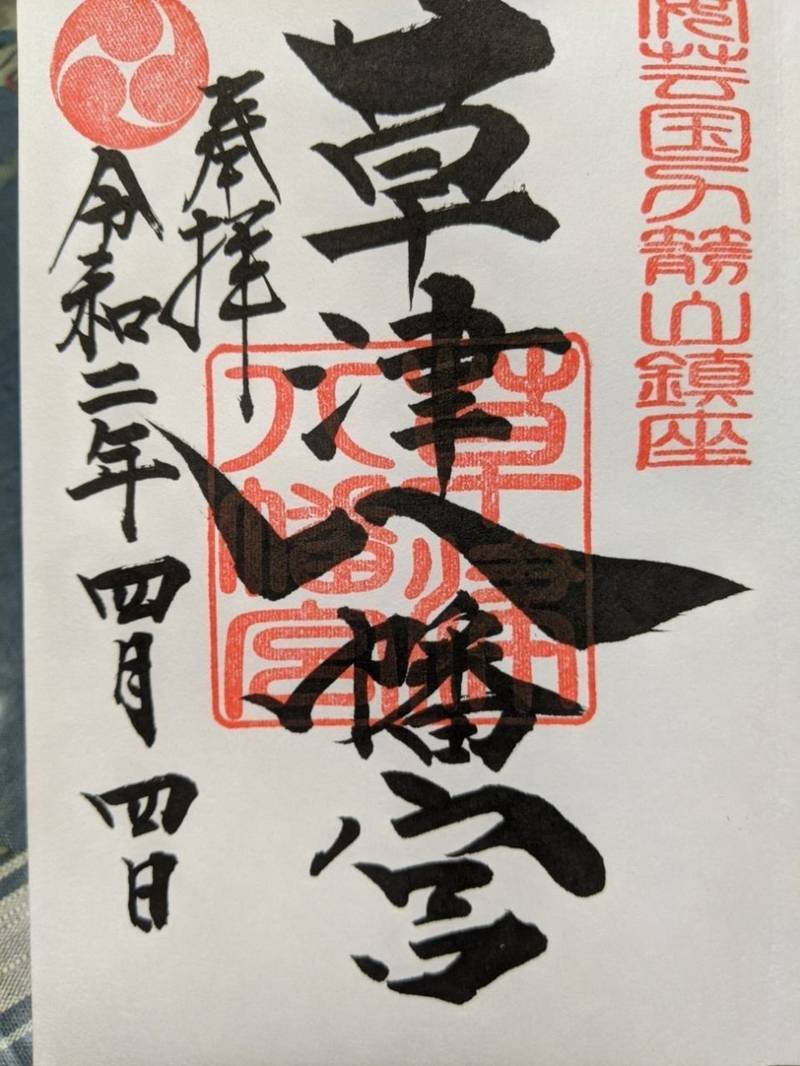 芸国力箭山鎮座
草津八幡宮
草津
八幡宮
奉拝
令和二年四月四日